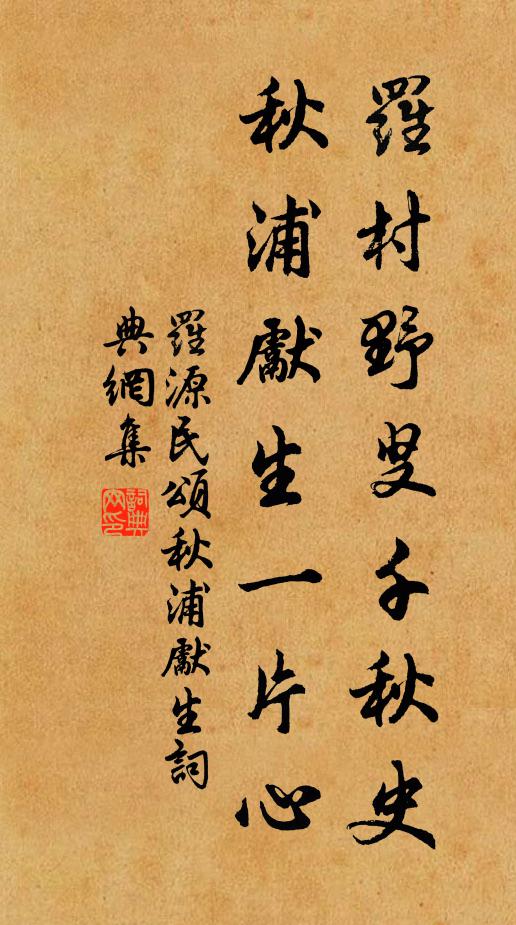 羅村野叟千秋史
秋浦獻生一片心
羅源民頌秋浦獻生詞
典網集
詞典網印